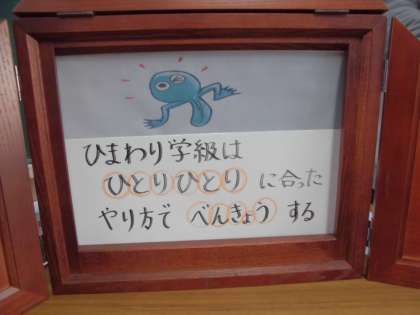 ひまわり学級は
ひとりひとり に合った
やり方で べんきょう する